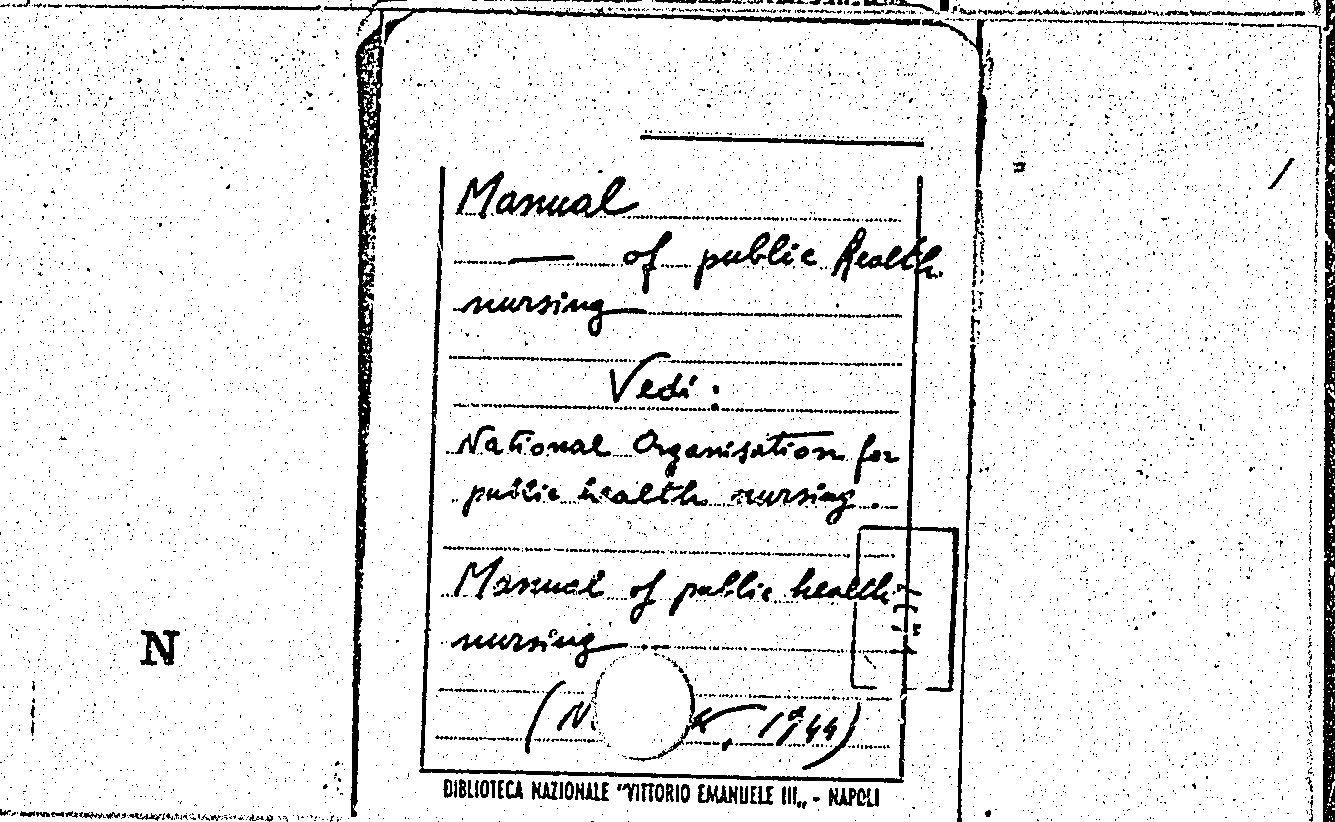 Manual
— of public Health
nursing
Vedi:
National Organisation for
public health nursing.
Manual of public health
nursing
(N. 1944)
N
BIBLIOTECA NAZIONALE "VITTORIO EMANUELE III„ - NAPOLI